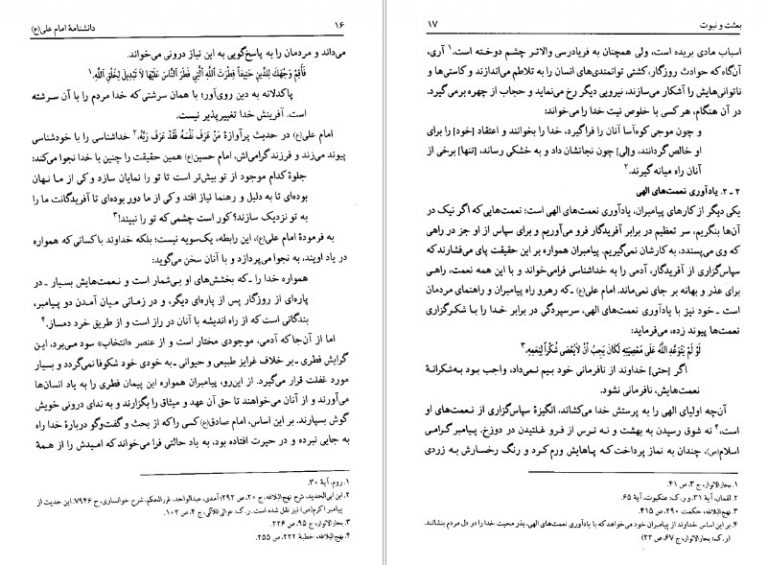 ۱۶ دانشنامهٔ امام علی(ع)
می‌داند و مردمان را به پاسخ‌گویی به این نیاز درونی می‌خواند.
فَأَقِمْ وَجْهَكَ لِلدِّينِ حَنِيفاً فِطْرَتَ اللَّهِ الَّتِي فَطَرَ النَّاسَ عَلَيْهَا لَا تَبْدِيلَ لِخَلْقِ اللَّهِ.۱
پاکدلانه به دین روی‌آور؛ با همان سرشتی که خدا مردم را با آن سرشته
است. آفرینش خدا تغییرپذیر نیست.
امام علی(ع) در حدیث پرآوازهٔ مَنْ عَرَفَ نَفْسَهُ فَقَدْ عَرَفَ رَبَّهُ،۲ خداشناسی را با خودشناسی
پیوند می‌زند و فرزند گرامی‌اش، امام حسین(ع) همین حقیقت را چنین با خدا نجوا می‌کند:
جلوهٔ کدام موجود از تو بیش‌تر است تا تو را نمایان سازد و کی از ما نهان
بوده‌ای تا به دلیل و رهنما نیاز افتد و کی از ما دور بوده‌ای تا آفریدگانت ما را
به تو نزدیک سازند؟ کور است چشمی که تو را نبیند!۳
به فرمودهٔ امام علی(ع)، این رابطه، یک‌سویه نیست؛ بلکه خداوند با کسانی که همواره
در یاد اویند، به نجوا می‌پردازد و با آنان سخن می‌گوید:
همواره خدا را ـ که بخشش‌های او بی‌شمار است و نعمت‌هایش بسیار ـ در
پاره‌ای از روزگار پس از پاره‌ای دیگر، و در زمانی میان آمدن دو پیامبر،
بندگانی است که از راه اندیشه با آنان در راز است و از طریق خرد دمساز.۴
اما از آن‌جا که آدمی، موجودی مختار است و از عنصر «انتخاب» سود می‌برد، این
گرایش فطری ـ بر خلاف غرایز طبیعی و حیوانی ـ به خودی خود شکوفا نمی‌گردد و بسیار
مورد غفلت قرار می‌گیرد. از این‌رو، پیامبران همواره این پیمان فطری را به یاد انسان‌ها
می‌آورند و از آنان می‌خواهند تا حق آن عهد و میثاق را بگزارند و به ندای درونی خویش
گوش بسپارند. بر این اساس، امام صادق(ع) کسی را که از بحث و گفت‌وگو دربارهٔ خدا راه
به جایی نبرده و در حیرت افتاده بود، به یاد حالتی فرا می‌خواند که امیدش را از همهٔ
۱. روم، آیهٔ ۳۰.
۲. ابن ابی‌الحدید، شرح نهج‌البلاغه، ج ۲۰، ص ۲۹۲؛ آمدی، عبدالواحد، غررالحکم، شرح خوانساری، ح ۷۹۴۶. این حدیث از
پیامبر اکرم(ص) نیز نقل شده است. ر.ک: عوالی اللآلی، ج ۴، ص ۱۰۲.
۳. بحارالانوار، ج ۹۵، ص ۲۲۶.
۴. نهج‌البلاغه، خطبهٔ ۲۲۲، ص ۲۵۵.
بعثت و نبوت ۱۷
اسباب مادی بریده است، ولی همچنان به فریادرسی والاتر چشم دوخته است.۱ آری،
آن‌گاه که حوادث روزگار، کشتی توانمندی‌های انسان را به تلاطم می‌اندازند و کاستی‌ها و
ناتوانی‌هایش را آشکار می‌سازند، نیرویی دیگر رخ می‌نماید و حجاب از چهره برمی‌گیرد.
در آن هنگام، هر کسی با خلوص نیت خدا را می‌خواند:
و چون موجی کوه‌آسا آنان را فراگیرد، خدا را بخوانند و اعتقاد [خود] را برای
او خالص گردانند، و[لی] چون نجاتشان داد و به خشکی رساند، [تنها] برخی از
آنان راه میانه گیرند.۲
۲ ـ ۲. یادآوری نعمت‌های الهی
یکی دیگر از کارهای پیامبران، یادآوری نعمت‌های الهی است؛ نعمت‌هایی که اگر نیک در
آن‌ها بنگریم، سر تعظیم در برابر آفریدگار فرو می‌آوریم و برای سپاس از او جز در راهی
که وی می‌پسندد، به کارشان نمی‌گیریم. پیامبران همواره بر این حقیقت پای می‌فشارند که
سپاس‌گزاری از آفریدگار، آدمی را به خداشناسی فرامی‌خواند و با این همه نعمت، راهی
برای عذر و بهانه بر جای نمی‌ماند. امام علی(ع) ـ که رهرو راه پیامبران و راهنمای مردمان
است ـ خود نیز با یادآوری نعمت‌های الهی، سرسپردگی در برابر خدا را با شکرگزاری
نعمت‌ها پیوند زده، می‌فرماید:
لَوْ لَمْ يَتَوَعَّدِ اللَّهُ عَلَى مَعْصِيَتِهِ لَكَانَ يَجِبُ أَنْ لَا يُعْصَى شُكْراً لِنِعَمِهِ.۳
اگر [حتی] خداوند از نافرمانی خود بیم نمی‌داد، واجب بود به‌شکرانهٔ
نعمت‌هایش، نافرمانی نشود.
آن‌چه اولیای الهی را به پرستش خدا می‌کشاند، انگیزهٔ سپاس‌گزاری از نعمت‌های او
است،۴ نه شوق رسیدن به بهشت و نه ترس از فرو غلتیدن در دوزخ. پیامبر گرامی
اسلام(ص)، چندان به نماز پرداخت که پاهایش ورم کرد و رنگ رخسارش به زردی
۱. بحارالانوار، ج ۳، ص ۴۱.
۲. لقمان، آیهٔ ۳۱. و ر.ک: عنکبوت، آیهٔ ۶۵.
۳. نهج‌البلاغه، حکمت ۲۹۰، ص ۴۱۵.
۴. بر این اساس خداوند از پیامبران خود می‌خواهد که با یادآوری نعمت‌های الهی، بذر محبت خدا را در دل مردم بنشانند.
(ر.ک: بحارالانوار، ج ۶۷، ص ۲۲)